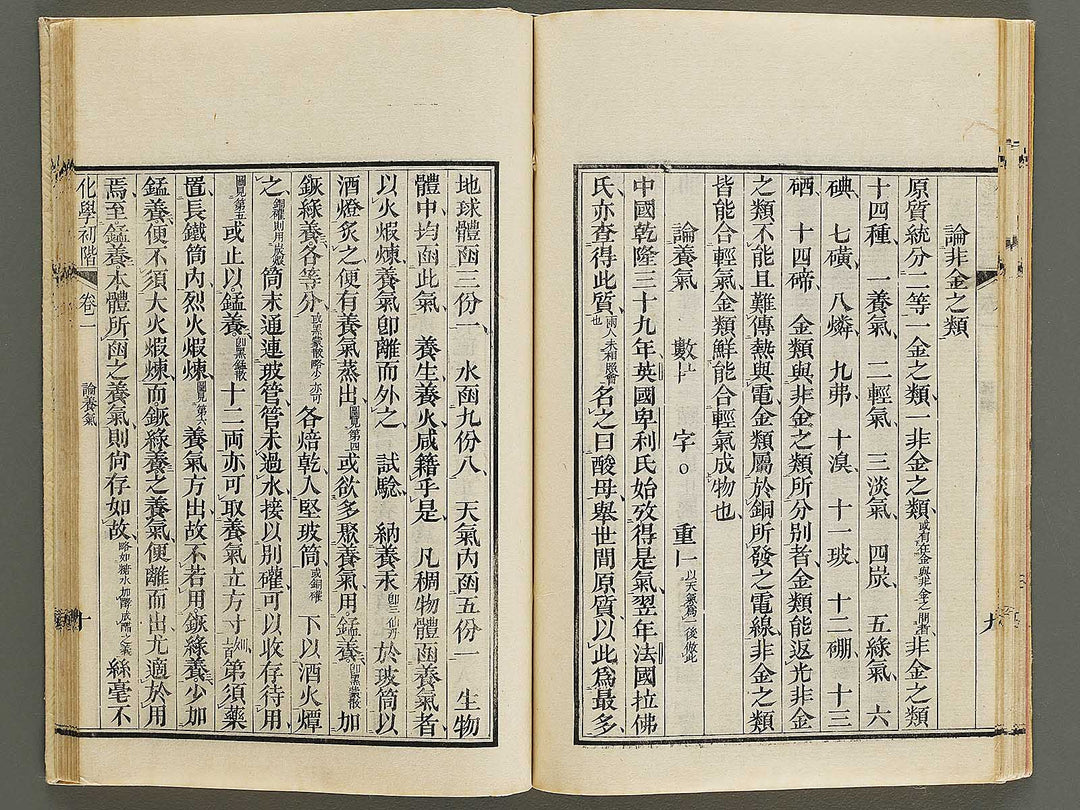 論非金之類
原質統分二等一金之類一非金之類或有在金與非金之間者非金之類
十四種　一養氣　二輕氣　三淡氣　四炭　五綠氣　六
碘　七磺　八燐　九弗　十溴　十一玻　十二硼　十三
硒　十四碲　金類與非金之類所分別者金類能返光非金
之類不能且難傳熱與電金類屬於銅所發之電線非金之類
皆能合輕氣金類鮮能合輕氣成物也
論養氣　數　字　重　以天氣爲一後倣此
中國乾隆三十九年英國卑利氏始攷得是氣翌年法國拉佛
氏亦查得此質兩人未相照會也名之曰酸母舉世間原質以此爲最多
九
地球體函三份一　水函九份八　天氣內函五份一　生物
體中均函此氣　養生養火咸籍乎是　凡稠物體函養氣者
以火煅煉養氣卽離而外之　試驗　納養汞卽三仙丹於玻筒以
酒燈炙之便有養氣蒸出圖見第四或欲多聚養氣用錳養卽黑錳散加
鉀綠養各等分或黑錳散略少亦可各焙乾入堅玻筒或銅罐下以酒火燂
之銅罐則用炭燬筒末通連玻管管末過水接以別罐可以收存待用
圖見第五或止以錳養卽黑錳散十二両亦可取養氣立方寸第須藥
置長鐵筒內烈火煅煉圖見第六養氣方出故不若用鉀綠養少加
錳養便不須大火煅煉而鉀綠養之養氣便離而出尤適於用
焉至錳養本體所函之養氣則尙存如故略如糖水加酵成酒之義絲毫不
化學初階　卷一　論養氣　十